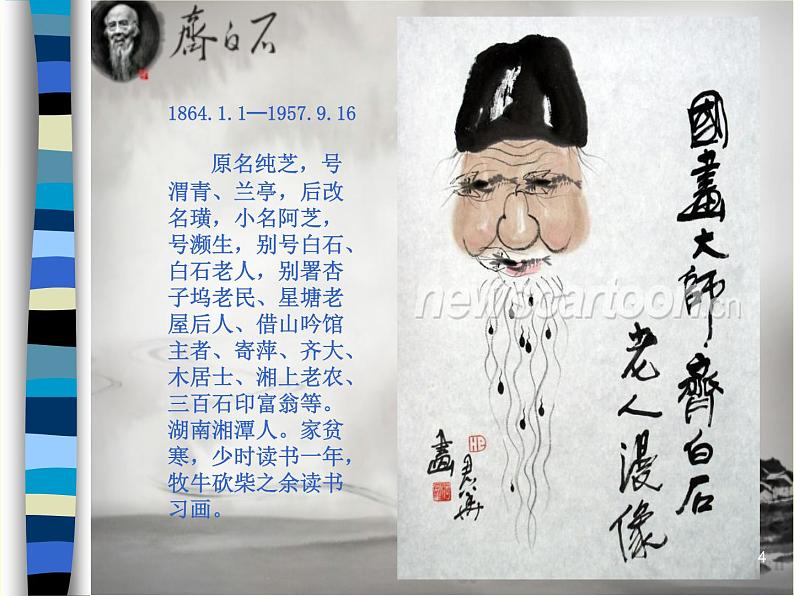 齊白石
1864.1.1—1957.9.16
原名纯芝，号
渭青、兰亭，后改
名璜，小名阿芝，
号濒生，别号白石、
白石老人，别署杏
子坞老民、星塘老
屋后人、借山吟馆
主者、寄萍、齐大、
木居士、湘上老农、
三百石印富翁等。
湖南湘潭人。家贫
寒，少时读书一年，
牧牛砍柴之余读书
习画。
國畫大師齊白石
老人漫像
畫
newscartoon.cn
4